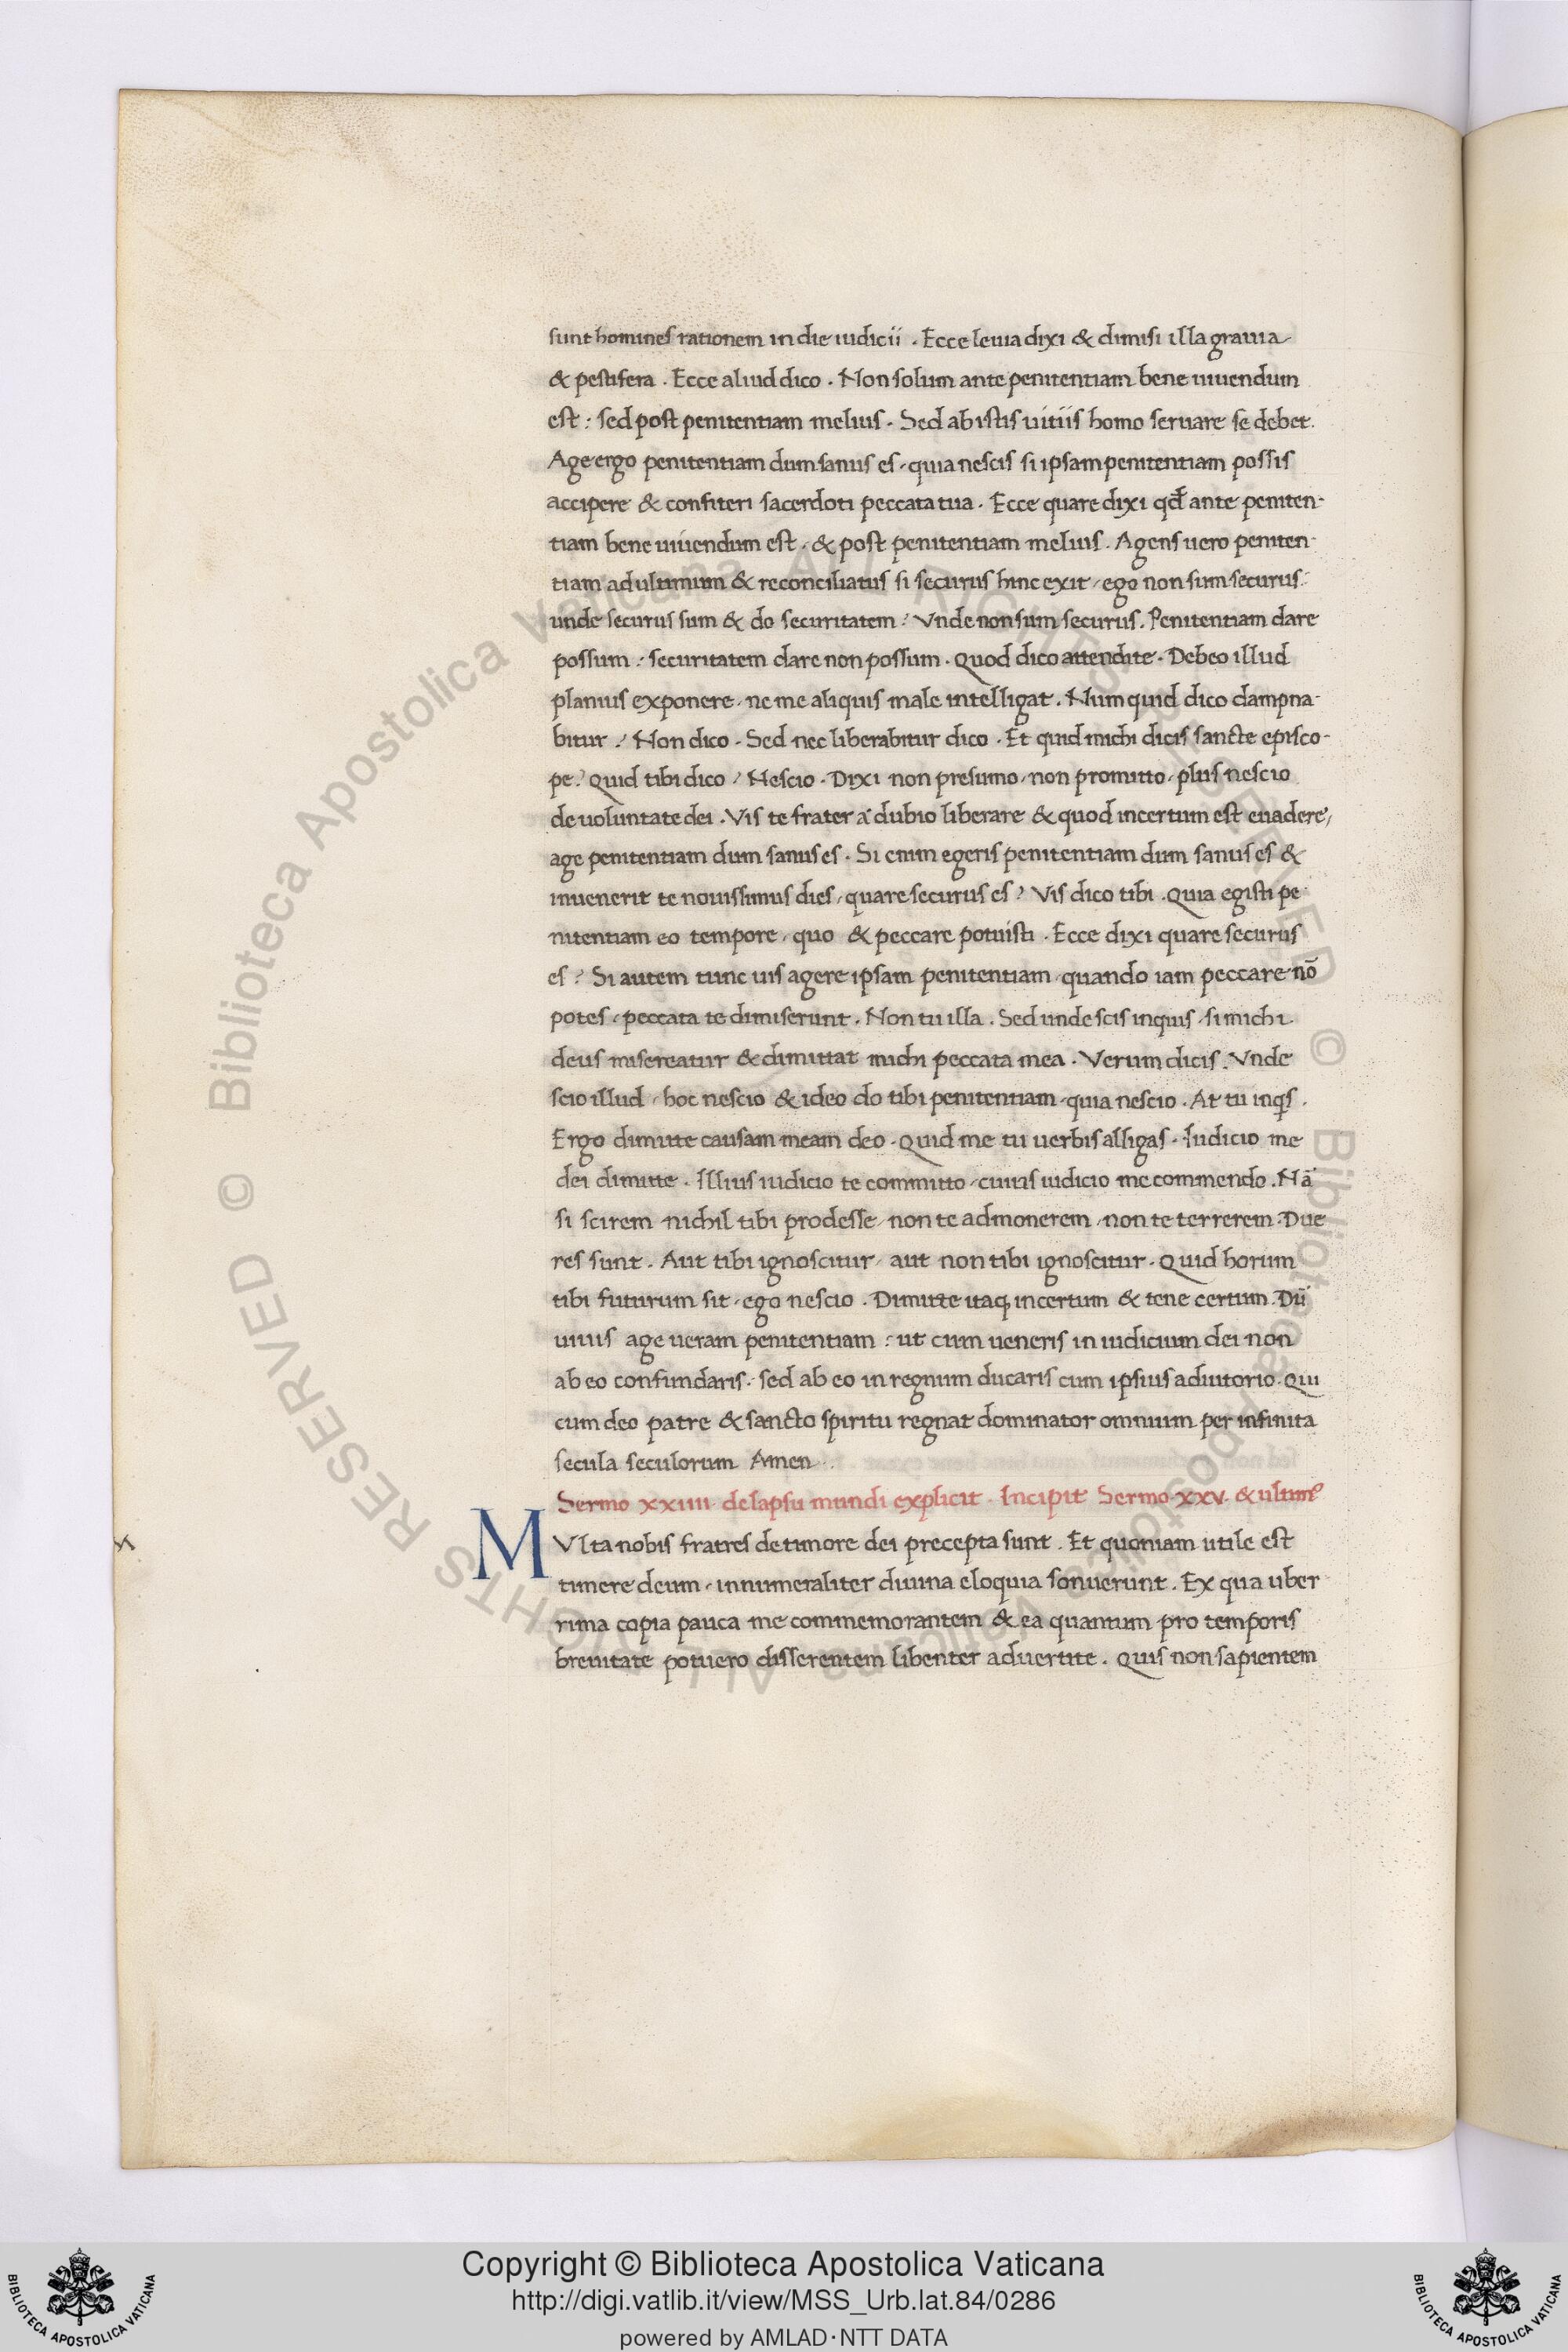 sunt homines rationem in die iudicii . Ecce leuia dixi & dimisi illa grauia
& pestifera . Ecce aliud dico . Non solum ante penitentiam bene uiuendum
est : sed post penitentiam melius . Sed ab istis uitiis homo seruare se debet .
Age ergo penitentiam dum sanus es , quia nescis si ipsam penitentiam possis
accipere & confiteri sacerdoti peccata tua . Ecce quare dixi qđ ante peniten-
tiam bene uiuendum est , & post penitentiam melius . Agens uero peniten-
tiam ad ultimum & reconciliatus si securus hinc exit , ego non sum securus :
unde securus sum & do securitatem ? Vnde non sum securus . Penitentiam dare
possum : securitatem dare non possum . Quod dico attendite . Debeo illud
planius exponere , ne me aliquis male intelligat . Numquid dico dampna-
bitur ? Non dico . Sed nec liberabitur dico . Et quid michi dicis sancte episco-
pe ? Quid tibi dico ? Nescio . Dixi non presumo , non promitto , plus nescio
de uoluntate dei . Vis te frater a dubio liberare & quod incertum est euadere ,
age penitentiam dum sanus es . Si enim egeris penitentiam dum sanus es &
inuenerit te nouissimus dies , quare securus es ? Vis dico tibi . Quia egisti pe-
nitentiam eo tempore , quo & peccare potuisti . Ecce dixi quare securus
es ? Si autem tunc uis agere ipsam penitentiam , quando iam peccare nō
potes , peccata te dimiserunt . Non tu illa . Sed unde scis inquis , si michi
deus misereatur & dimittat michi peccata mea . Verum dicis . Vnde
scio illud , hoc nescio & ideo do tibi penitentiam , quia nescio . At tu inqs .
Ergo dimitte causam meam deo . Quid me tu uerbis alligas . Iudicio me
dei dimitte . Illius iudicio te committo , cuius iudicio me commendo . Nā
si scirem nichil tibi prodesse , non te admonerem , non te terrerem . Due
res sunt . Aut tibi ignoscitur , aut non tibi ignoscitur . Quid horum
tibi futurum sit , ego nescio . Dimitte itaq incertum & tene certum . Dū
uiuis age ueram penitentiam : ut cum ueneris in iudicium dei non
ab eo confundaris : sed ab eo in regnum ducaris cum ipsius adiutorio . Qui
cum deo patre & sancto spiritu regnat dominator omnium per infinita
secula seculorum Amen .
Sermo xxiiii de lapsu mundi explicit . Incipit Sermo . xxv . & ultimꝰ
MVlta nobis fratres de timore dei precepta sunt . Et quoniam utile est
timere deum , innumeraliter diuina eloquia sonuerunt . Ex qua uber-
rima copia pauca me commemorantem & ea quantum pro temporis
breuitate potuero disserentem libenter aduertite . Quis non sapientem
© Biblioteca Apostolica Vaticana ALL RIGHTS RESERVED © Biblioteca Apostolica Vaticana ALL RIGHTS RESERVED
Copyright © Biblioteca Apostolica Vaticana
http://digi.vatlib.it/view/MSS_Urb.lat.84/0286
powered by AMLAD·NTT DATA
BIBLIOTECA APOSTOLICA VATICANA
BIBLIOTECA APOSTOLICA VATICANA